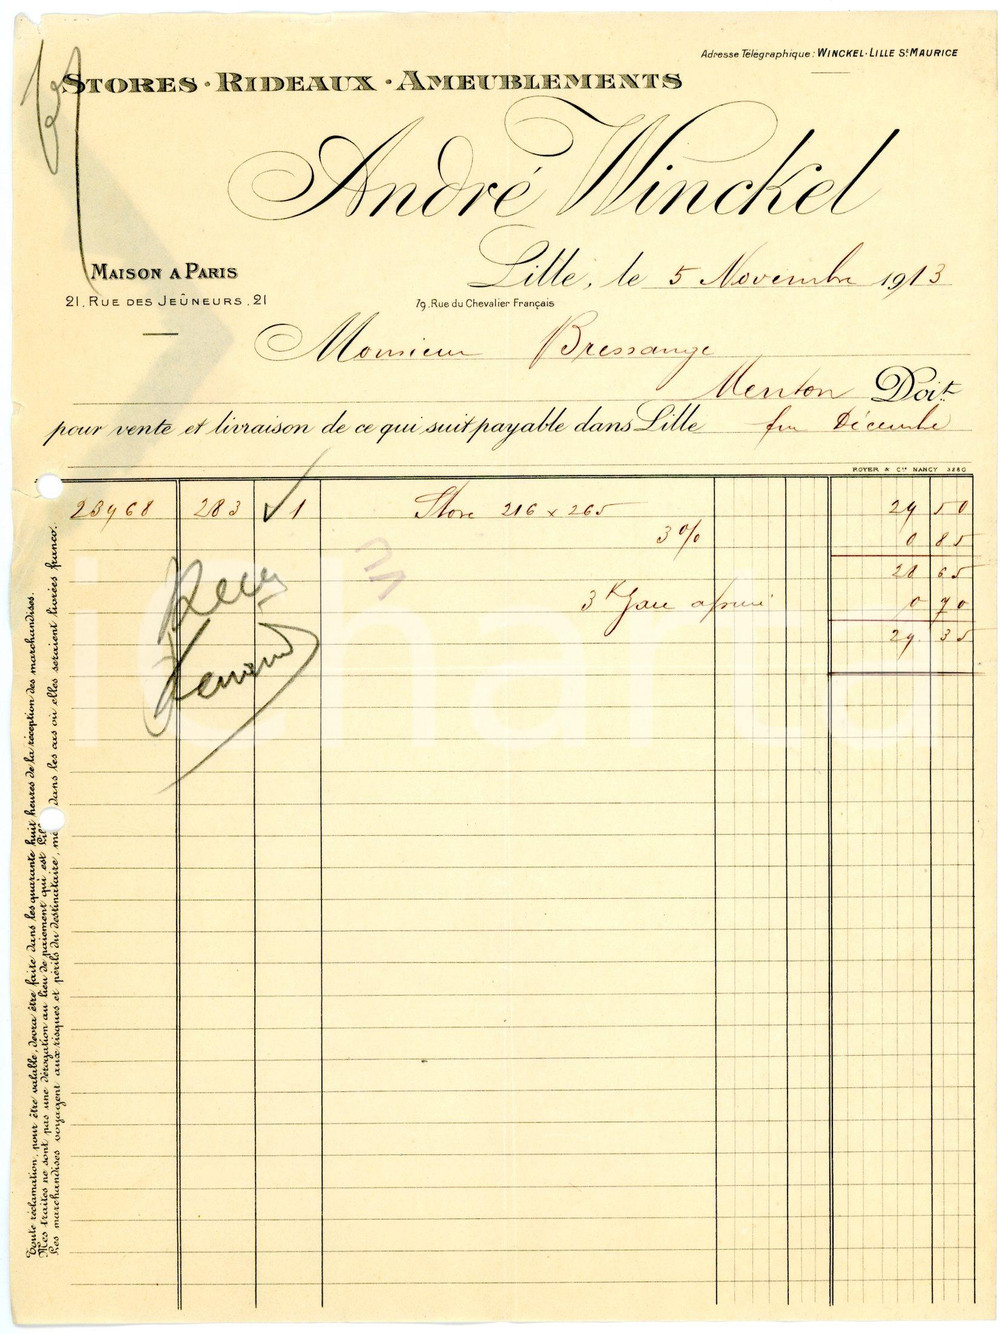 Adresse Télégraphique : WINCKEL-LILLE St MAURICE
STORES · RIDEAUX · AMEUBLEMENTS
André Winckel
Lille, le 5 Novembre 1913
MAISON A PARIS
21, RUE DES JEÛNEURS, 21
79, Rue du Chevalier Français
Monsieur Bressange
Menton Doit
pour vente et livraison de ce qui suit payable dans Lille fin Décembre
ROYER & Cie NANCY
23968 283 1 Store 216 x 265 29 50
3% 0 85
28 65
3K 0 70
29 35
Toute réclamation, pour être valable, devra être faite dans les quarante huit heures de la réception des marchandises.
Mes traites ne sont pas une dérogation au lieu de paiement qui est Lille
Les marchandises voyagent aux risques et périls du destinataire, même dans les cas où elles seraient livrées franco.
icharta